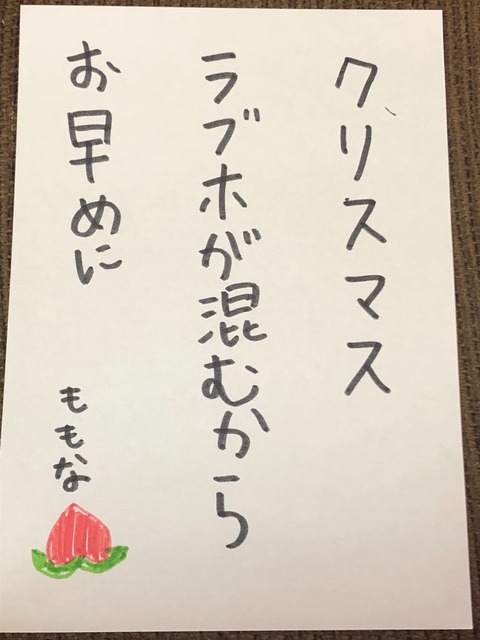 クリスマス
ラブホが混むから
お早めに
ももな